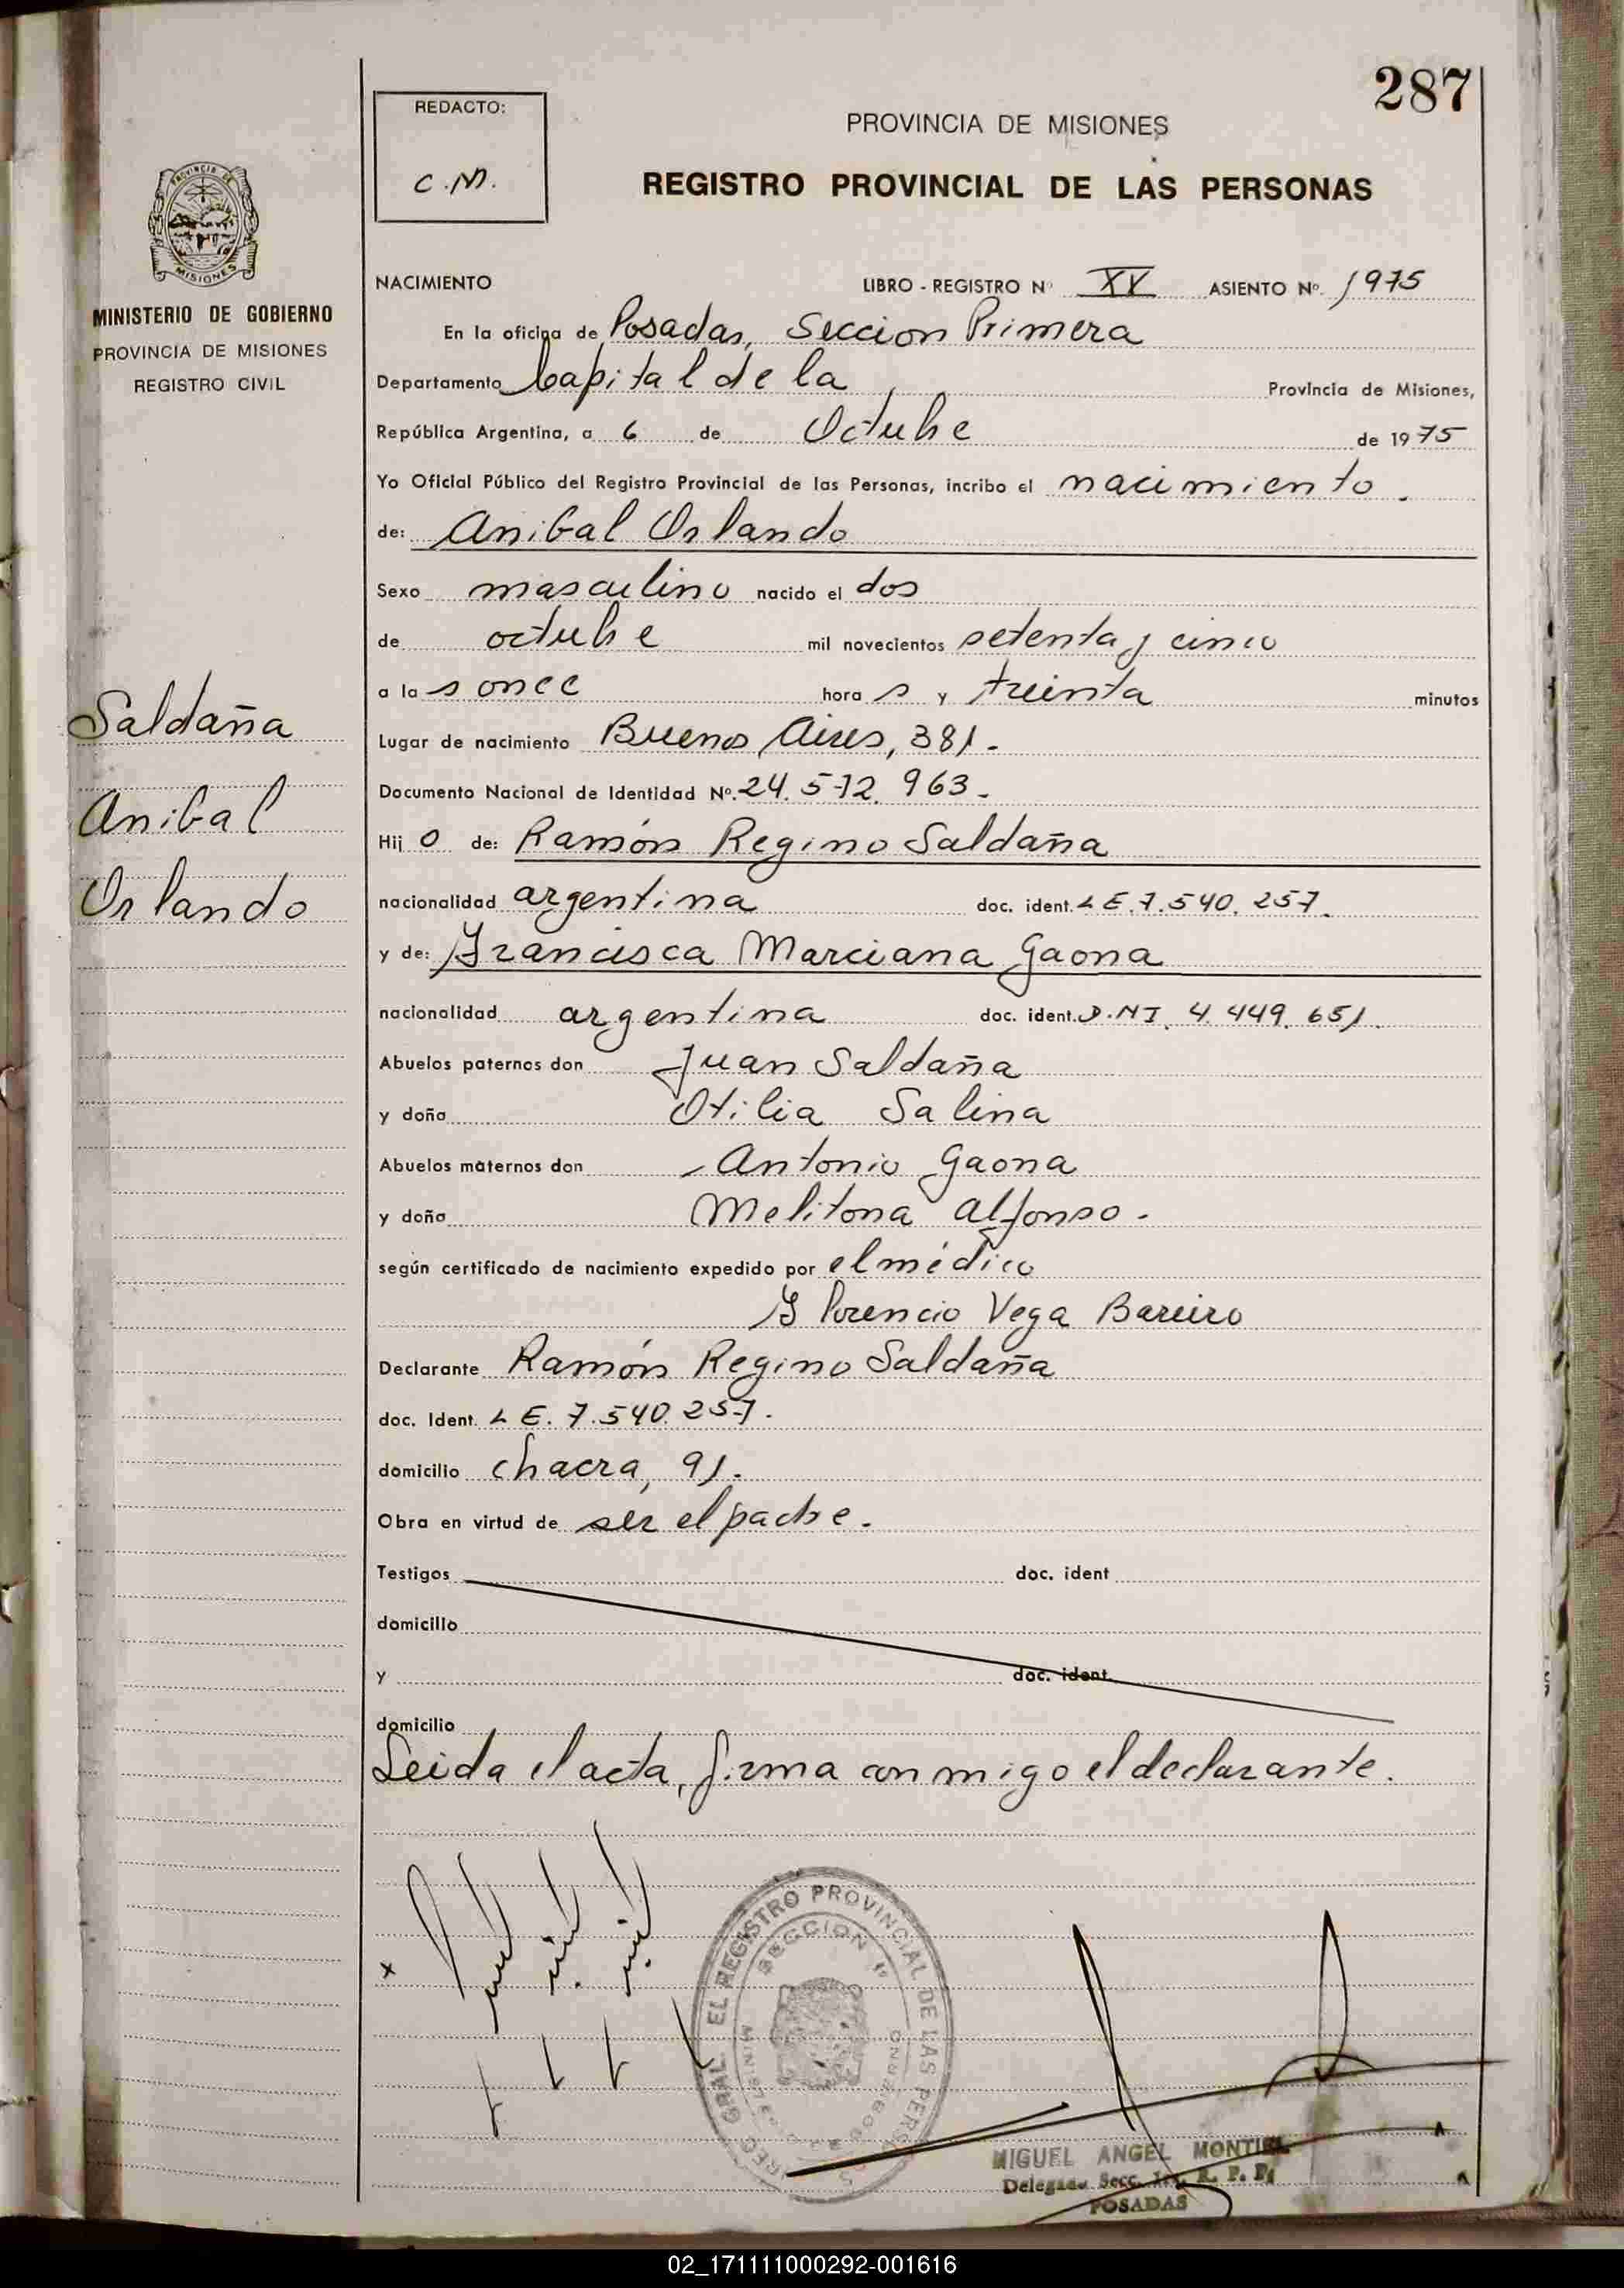 287
REDACTO:
C.M.
PROVINCIA DE MISIONES
REGISTRO PROVINCIAL DE LAS PERSONAS
PROVINCIA DE
MISIONES
MINISTERIO DE GOBIERNO
PROVINCIA DE MISIONES
REGISTRO CIVIL
Saldaña
Anibal
Orlando
NACIMIENTO LIBRO - REGISTRO Nº XV ASIENTO Nº 1975
En la oficina de Posadas, Seccion Primera
Departamento Capital de la Provincia de Misiones,
República Argentina, a 6 de Octubre de 1975
Yo Oficial Público del Registro Provincial de las Personas, incribo el nacimiento.
de: Anibal Orlando
Sexo masculino nacido el dos
de octubre mil novecientos setenta y cinco
a las once horas y treinta minutos
Lugar de nacimiento Buenos Aires, 381.
Documento Nacional de Identidad Nº. 24.572.963.
Hijo de: Ramón Regino Saldaña
nacionalidad argentina doc. ident. LE.7.540.257.
y de: Francisca Marciana Gaona
nacionalidad argentina doc. ident. D.NI. 4.449.651.
Abuelos paternos don Juan Saldaña
y doña Otilia Salina
Abuelos maternos don Antonio Gaona
y doña Melitona Alfonso.
según certificado de nacimiento expedido por el médico
Florencio Vega Bareiro
Declarante Ramón Regino Saldaña
doc. Ident. LE. 7.540.257.
domicilio chacra, 91.
Obra en virtud de ser el padre.
Testigos doc. ident
domicilio
y doc. ident.
domicilio
Leida el acta, firma conmigo el declarante.
x
GRAL. EL REGISTRO PROVINCIAL DE LAS PERS
SECCION 1ª
MIGUEL ANGEL MONTIEL
Delegado Secc. 1ra. R. P. P.
POSADAS
02_171111000292-001616